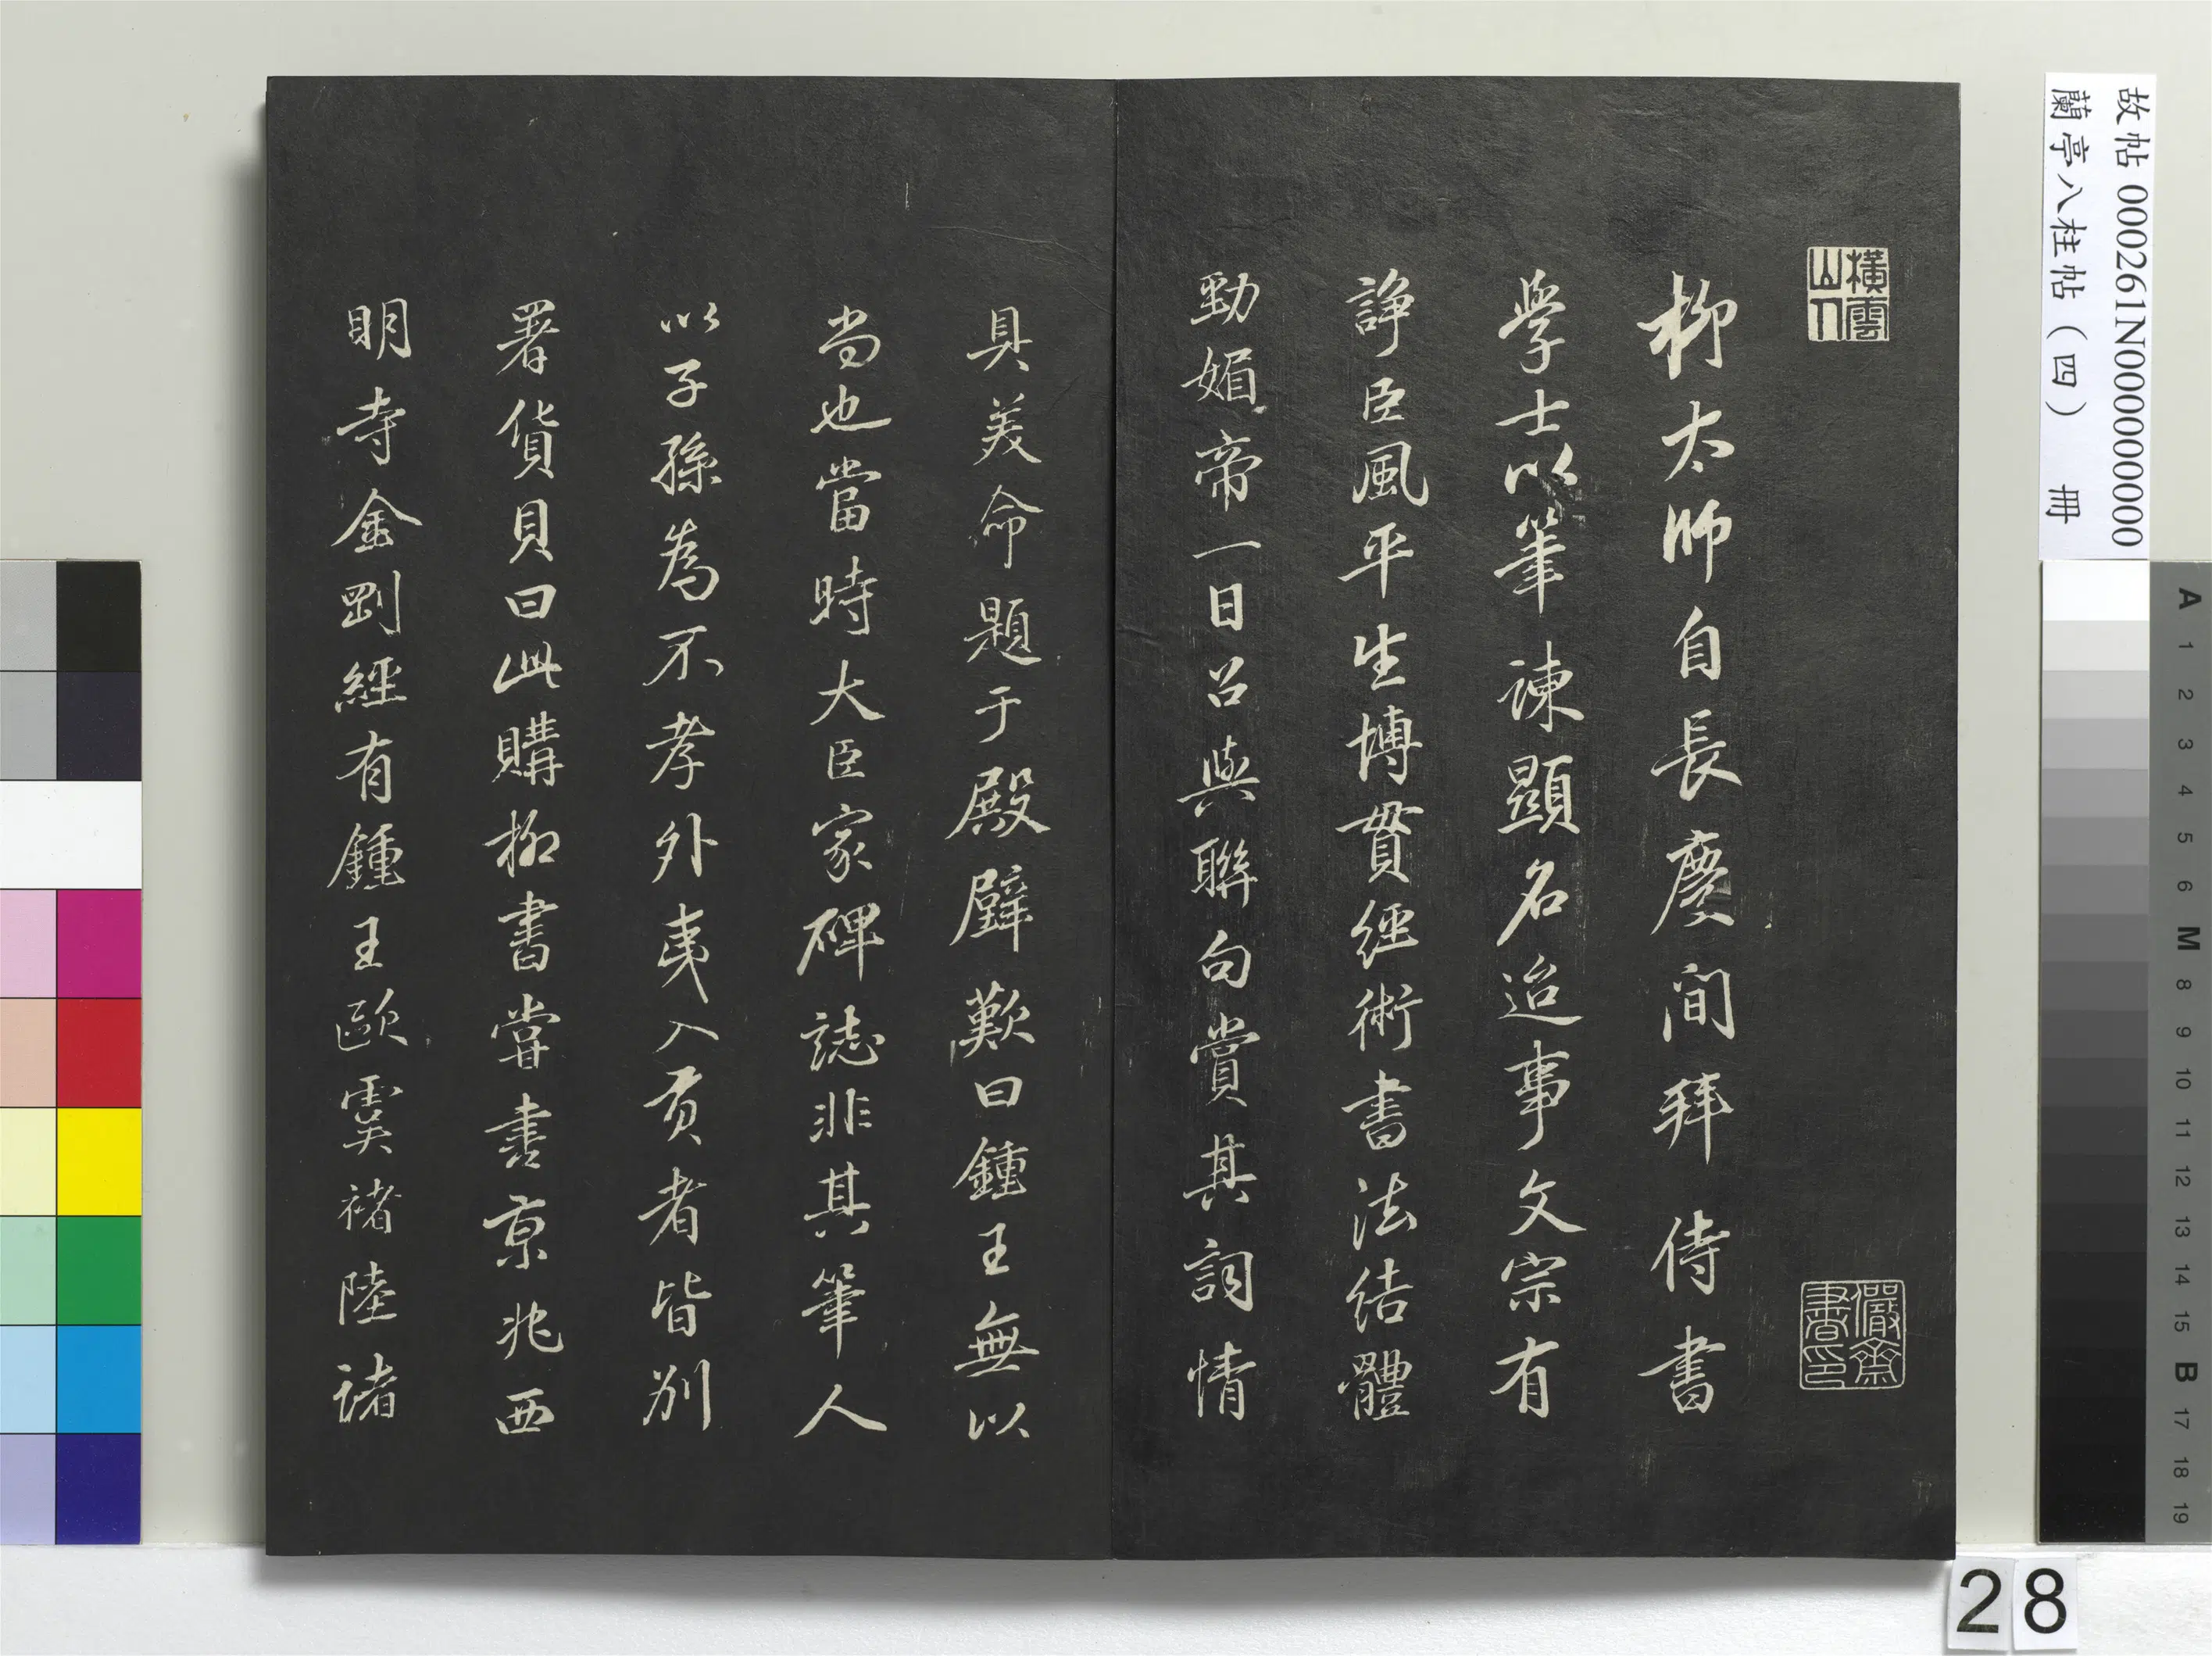 故帖 000261N000000000
蘭亭八柱帖（四） 冊
橫雲山人
儼齋書畫印
柳太師自長慶間拜侍書
學士以筆諫顯名迨事文宗有
諍臣風平生博貫經術書法結體
勁媚帝一日召與聯句賞其詞情
具美命題于殿壁歎曰鍾王無以
尚也當時大臣家碑誌非其筆人
以子孫為不孝外夷入貢者皆別
署貨貝曰此購柳書嘗書京兆西
明寺金剛經有鍾王歐虞褚陸諸
A 1 2 3 4 5 6 M 8 9 10 11 12 13 14 15 B 17 18 19
28